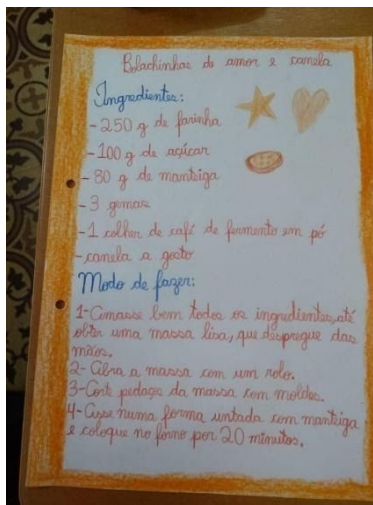 Bolachinhas de amor e canela
Ingredientes:
-250 g de farinha
-100 g de açúcar
-80 g de manteiga
-3 gemas
-1 colher de café de fermento em pó
-canela a gosto
Modo de fazer:
1-Amasse bem todos os ingredientes, até
obter uma massa lisa, que despregue das
mãos.
2- Abra a massa com um rolo.
3-Corte pedaços da massa com moldes.
4-Asse numa forma untada com manteiga
e coloque no forno por 20 minutos.